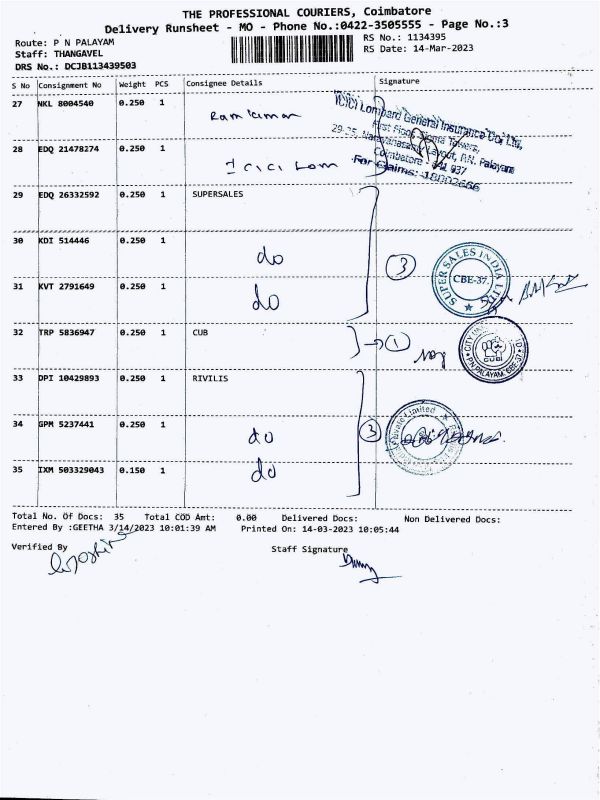 THE PROFESSIONAL COURIERS, Coimbatore
Delivery Runsheet - MO - Phone No.:0422-3505555 - Page No.:3
Route: P N PALAYAM
Staff: THANGAVEL
DRS No.: DCJB113439503
RS No.: 1134395
RS Date: 14-Mar-2023
S No Consignment No Weight PCS Consignee Details Signature
27 NKL 8004540 0.250 1 Ram kumar
ICICI Lombard General Insurance Co. Ltd.,
First Floor, Towers,
Layout, P.N. Palayam
Coimbatore - 641 037
For Claims: 18002666
28 EDQ 21478274 0.250 1 ICICI Lom
29 EDQ 26332592 0.250 1 SUPERSALES
30 KDI 514446 0.250 1 do
3
SUPER SALES INDIA LTD
CBE-37.
31 KVT 2791649 0.250 1 do
32 TRP 5836947 0.250 1 CUB
1
P.N.PALAYAM, CBE-37
33 DPI 10429893 0.250 1 RIVILIS
34 GPM 5237441 0.250 1 do
3
Private Limited
35 IXM 503329043 0.150 1 do
Total No. Of Docs: 35 Total COD Amt: 0.00 Delivered Docs: Non Delivered Docs:
Entered By :GEETHA 3/14/2023 10:01:39 AM Printed On: 14-03-2023 10:05:44
Verified By Staff Signature